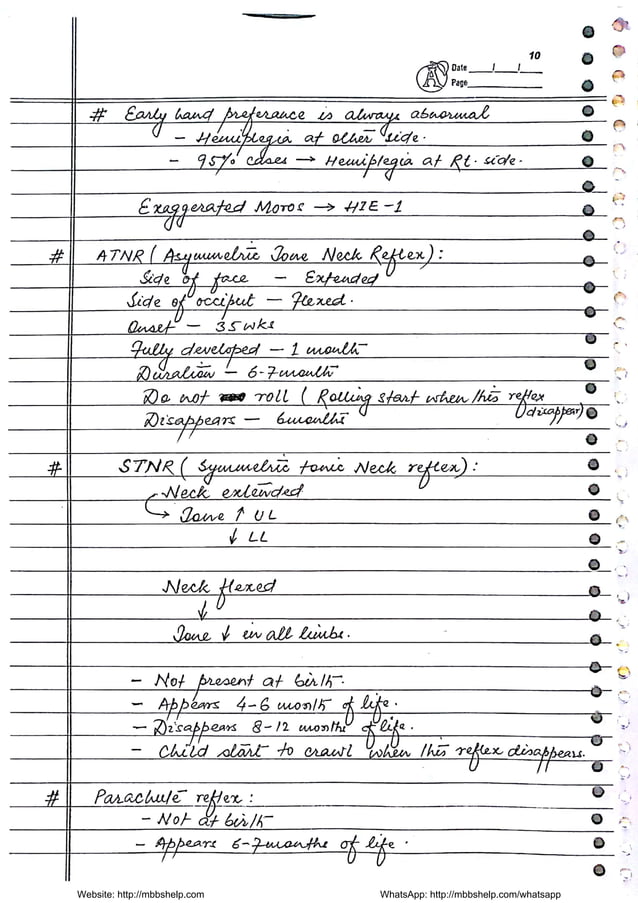 10
Date / /
Page
# Early hand preferance is always abnormal
- Hemiplegia at other side.
- 95% cases → Hemiplegia at Rt. side.
Exaggerated Moros → HIE-1
# ATNR (Asymmetric Tone Neck Reflex):
Side of face - Extended
Side of occiput - Flexed.
Onset - 35wks
Fully developed - 1 month
Duration - 6-7month
Do not roll (Rolling start when this reflex disappear)
Disappears - 6months
# STNR (Symmetric tonic Neck reflex):
Neck extended
→ Tone ↑ UL
↓ LL
Neck flexed
↓
Tone ↓ in all limbs.
- Not present at birth.
- Appears 4-6 month of life.
- Disappears 8-12 months of life.
- Child start to crawl when this reflex disappears.
# Parachute reflex:
- Not at birth
- Appears 6-7months of life.
Website: http://mbbshelp.com WhatsApp: http://mbbshelp.com/whatsapp